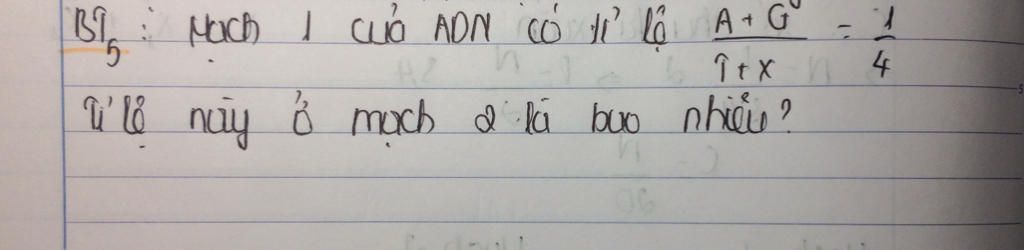 BT5 : Mạch 1 của ADN có tỉ lệ (A + G)/(T + X) = 1/4
Tỉ lệ này ở mạch 2 là bao nhiêu?